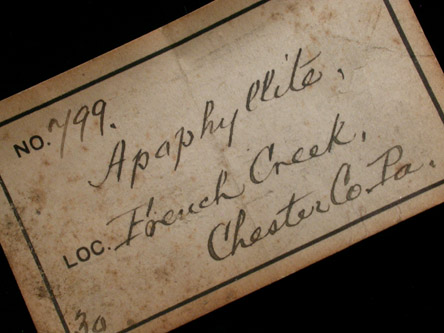 NO. 799.
Apaphyllite,
LOC. French Creek,
Chester Co. Pa.
30